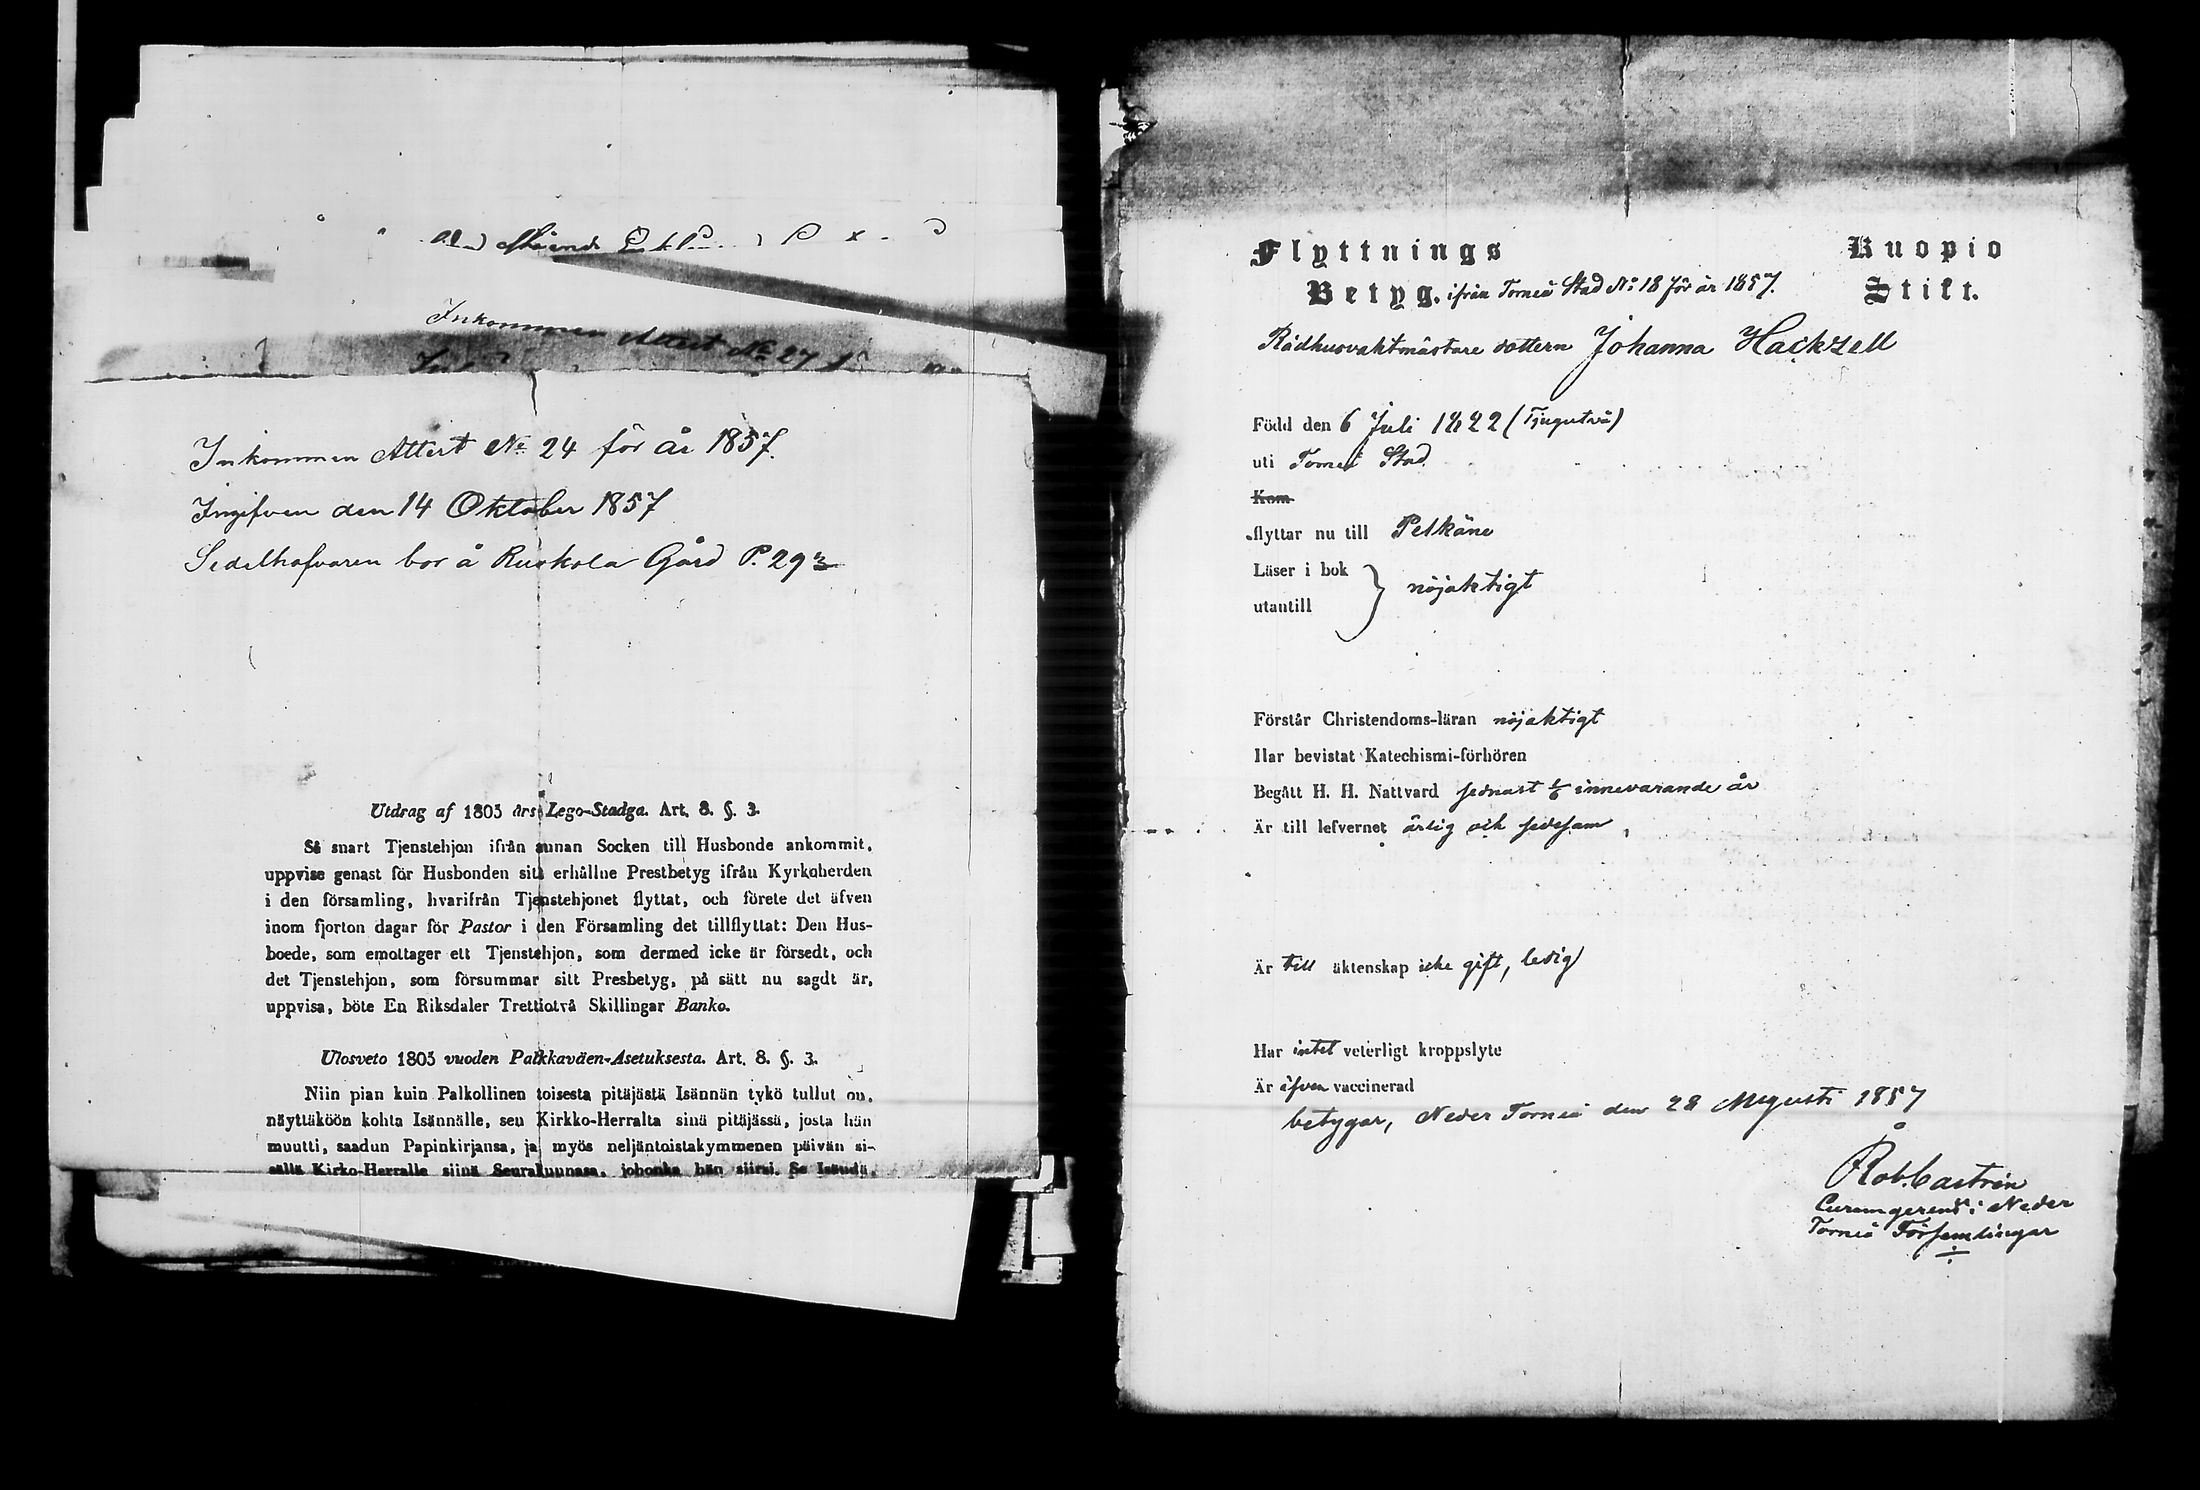 Inkommen Attest No 27
Inkommen Attest No 24 för år 1857.
Ingifven den 14 Oktober 1857
Sedelhafvaren bor å Ruokola Gård P. 293
Utdrag af 1805 års Lego-Stadga. Art. 8. §. 3.
Så snart Tjenstehjon ifrån annan Socken till Husbonde ankommit,
uppvise genast för Husbonden sitt erhållne Prestbetyg ifrån Kyrkoherden
i den församling, hvarifrån Tjenstehjonet flyttat, och förete det äfven
inom fjorton dagar för Pastor i den Församling det tillflyttat: Den Hus-
boede, som emottager ett Tjenstehjon, som dermed icke är försedt, och
det Tjenstehjon, som försummar sitt Presbetyg, på sätt nu sagdt är,
uppvisa, böte En Riksdaler Trettiotvå Skillingar Banko.
Ulosveto 1805 vuoden Palkkaväen-Asetuksesta. Art. 8. §. 3.
Niin pian kuin Palkollinen toisesta pitäjästä Isännän tykö tullut on,
näyttäköön kohta Isännälle, sen Kirkko-Herralta sinä pitäjässä, josta hän
muutti, saadun Papinkirjansa, ja myös neljäntoistakymmenen päivän si-
sällä Kirko-Herralle siinä Seurakunnasa, johonka hän siirsi. Se Isäudä,
Flyttnings Kuopio
Betyg. ifrån Torneå Stad No 18 för år 1857. Stift.
Rådhusvaktmästare dottern Johanna Hackzell
Född den 6 Juli 1822 (Tjugutvå)
uti Torneå Stad
Kom
flyttar nu till Pelkäne
Läser i bok
utantill } nöjaktigt
Förstår Christendoms-läran nöjaktigt
Har bevistat Katechismi-förhören
Begått H. H. Nattvard sednast innevarande år
Är till lefvernet ärlig och sedesam
Är till äktenskap icke gift, ledig
Har intet veterligt kroppslyte
Är äfven vaccinerad
betygar, Neder Torneå den 28 Augusti 1857
Rob. Castrén
Curam gerens i Neder
Torneå Församlingar